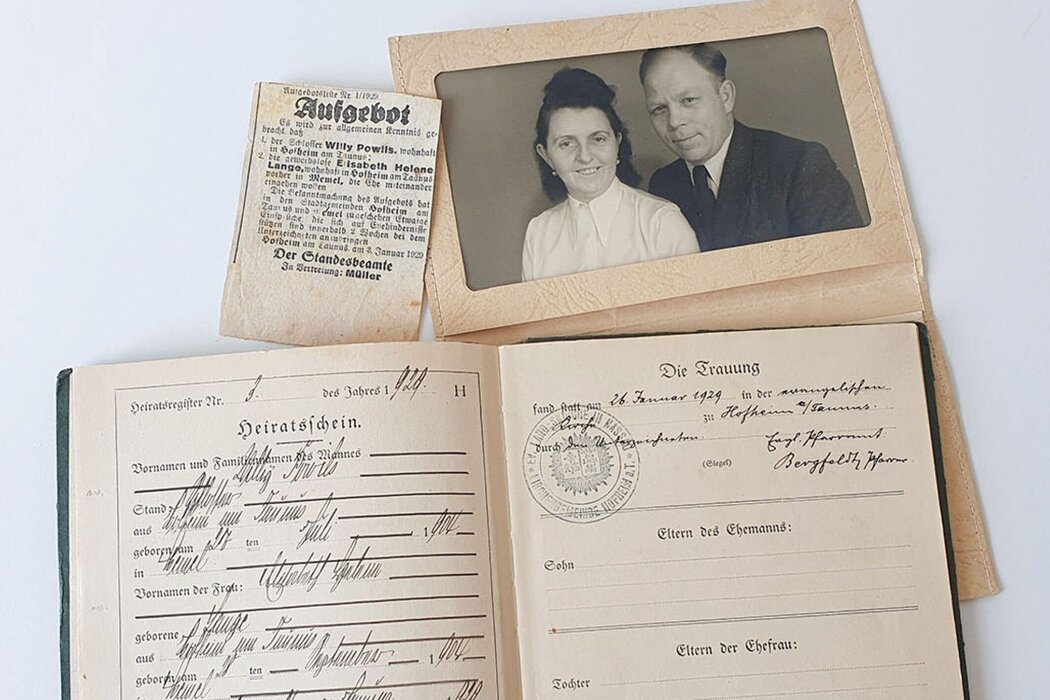 Aufgebotsliste Nr. 1/1929
Aufgebot
Es wird zur allgemeinen Kenntnis ge-
bracht, daß
1. der Schlosser Willy Powils, wohnhaft
in Hofheim am Taunus;
2. die gewerbslose Elisabeth Helene
Lange, wohnhaft in Hofheim am Taunus
vorher in Memel, die Ehe miteinander
eingehen wollen
Die Bekanntmachung des Aufgebots hat
in den Stadtgemeinden Hofheim am
Taunus und Memel zu geschehen Etwaige
Einsprüche, die sich auf Ehehindernisse
stützen sind innerhalb 2 Wochen bei dem
Unterzeichneten anzubringen
Hofheim am Taunus, am 3. Januar 1929
Der Standesbeamte
In Vertretung: Müller
Heiratsregister Nr. 3. des Jahres 1929. H
Heiratsschein.
Vornamen und Familiennamen des Mannes
Willy Powils
Stand Schlosser
aus Hofheim am Taunus
geboren am 28 ten Juli 1904
in Memel
Vornamen der Frau: Elisabeth Helene
geborene Lange
aus Hofheim am Taunus
geboren am ten September 1904
in Memel
Die Trauung
fand statt am 26. Januar 1929 in der evangelischen
Kirche zu Hofheim a/Taunus.
durch den Unterzeichneten.
(Siegel)
Evgl. Pfarramt
Bergfeldt, Pfarrer.
KIRCHENGEMEINDE HOFHEIM a.T.
Eltern des Ehemanns:
Sohn
Eltern der Ehefrau:
Tochter